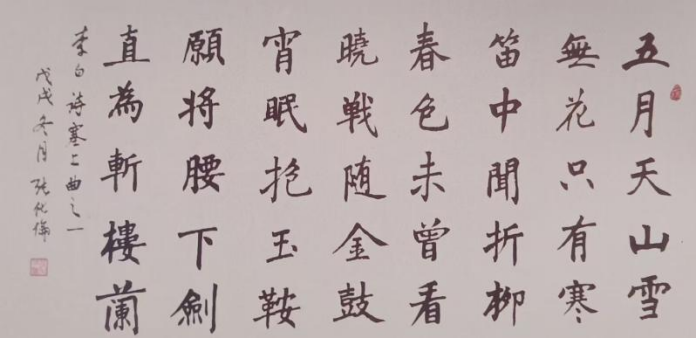 五月天山雪
無花只有寒
笛中聞折柳
春色未曾看
曉戦随金鼓
宵眠抱玉鞍
願將腰下劍
直為斬樓蘭
李白诗塞上曲之一
戊戌冬月 张化偉